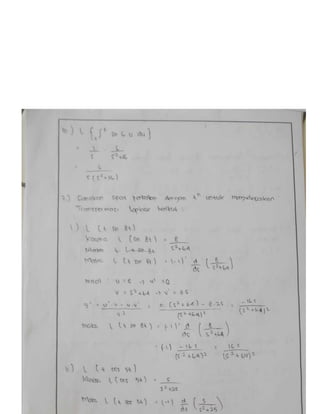 b.) L { ∫₀ᵗ sin 6 u du }
= 1/s · 6/(s²+36)
= 6/(s(s²+36))
2.) Gunakan sifat perkalian dengan tⁿ untuk menyelesaikan
Transformasi Laplace berikut :
1.) L (t sin 8t)
Karena L (sin 8t) = 8/(s²+64)
Maka L (t sin 8t) = (-1)¹ d/ds (8/(s²+64))
misal : u = 8 → u' = 0
v = s²+64 → v' = 2s
= (0 (s²+64) - 8·2s)/(s²+64)² = -16s/(s²+64)²
maka L (t sin 8t) = (-1)¹ d/ds (8/(s²+64))
= (-1) -16s/(s²+64)² = 16s/(s²+64)²
b.) L (t cos 5t)
Karena L (cos 5t) = s/(s²+25)
Maka L (t cos 5t) = (-1) d/ds (s/(s²+25)